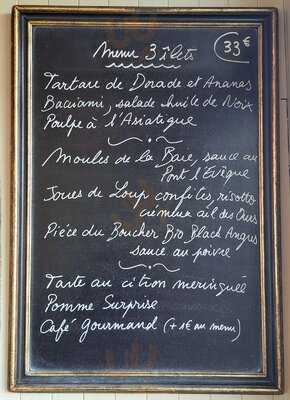 Menu 3 îlets 33€
Tartare de Dorade et Ananas
Baciami, salade huile de Noix
Poulpe à l'Asiatique
Moules de la Baie, sauce au
Pont l'Evêque
Joues de Loup confites, risotto
crémeux ail des Ours
Piéce du Boucher Bio Black Angus
sauce au poivre
Tarte au citron meringuée
Pomme Surprise
Café Gourmand (+1€ au menu)